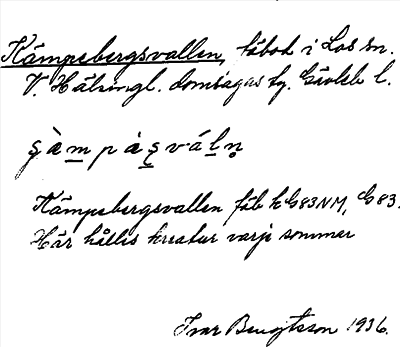 Kämpebergsvallen, fäbod i Los sn.
V. Hälsingl. domsagas tg. Gävleb l.
Kämpebergsvallen fäb k G83NM, G83.
Här hållis kreatur varje sommar
Ivar Bengtsson 1936.